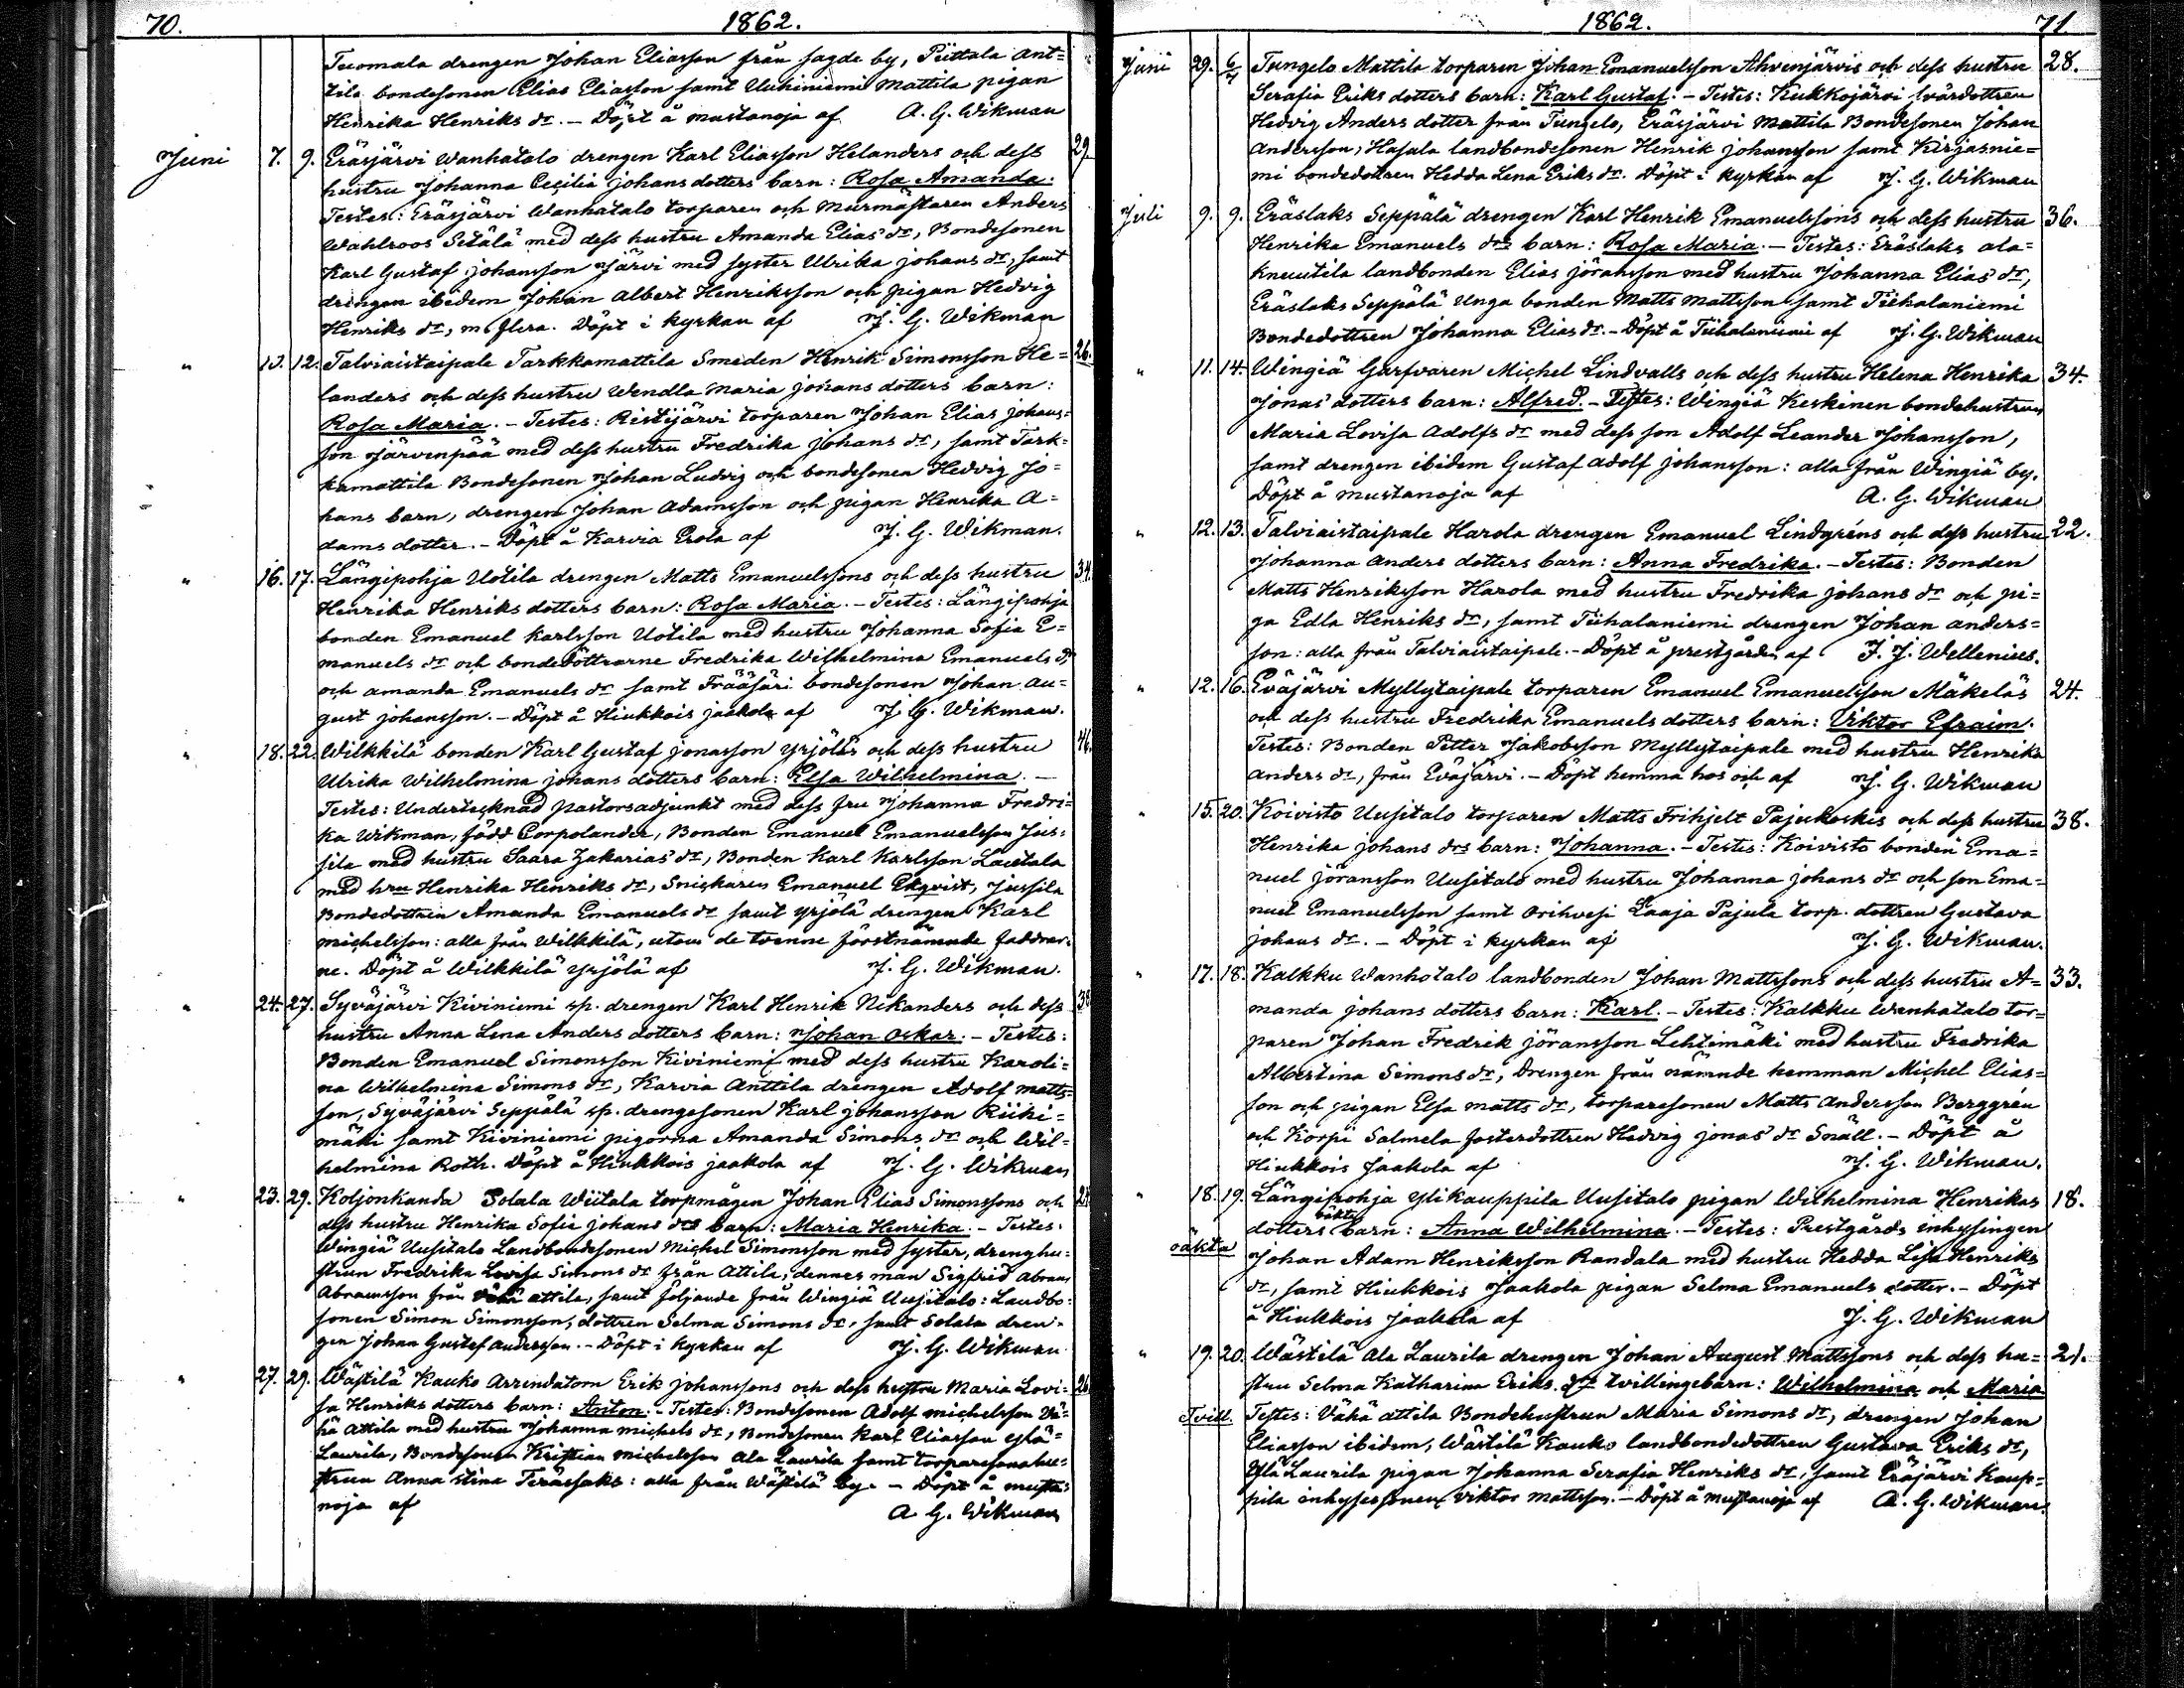 70. 1862.
Tuomala drengen Johan Eliasson från sagde by, Püttala Ant=
tila bondesonen Elias Eliasson samt Uuhiniemi Mattila pigan
Henrika Henriks dr. – Döpt å mustanoja af A. G. Wikman
Juni 7. 9. Eräsjärvi Wanhatalo drengen Karl Eliasson Helanders och dess 29.
hustru Johanna Cecilia Johans dotters barn: Rosa Amanda.
Testes: Eräsjärvi Wanhatalo torparen och Murmästaren Anders
Wahlroos Setälä med dess hustru Amanda Elias dr, Bondesonen
Karl Gustaf Johansson Järvi med syster Ulrika Johans dr, samt
drengen ibidem Johan Albert Henriksson och pigan Hedvig
Henriks dr, m. flera. Döpt i kyrkan af J. G. Wikman
" 10. 12. Talviaistaipale Tarkkamattila Smeden Henrik Simonsson He= 26.
landers och dess hustru Wendla Maria Johans dotters barn:
Rosa Maria. – Testes: Ristijärvi torparen Johan Elias Johans=
son Järvenpää med dess hustru Fredrika Johans dr, samt Tark=
kamattila Bondesonen Johan Ludvig och bondesonen Hedvig Jo=
hans barn, drengen Johan Adamsson och pigan Henrika A=
dams dotter. – Döpt å Karvia Erola af J. G. Wikman.
" 16. 17. Längipohja Uotila drengen Matts Emanuelssons och dess hustru 34.
Henrika Henriks dotters barn: Rosa Maria. – Testes: Längipohja
bonden Emanuel Karlsson Uotila med hustru Johanna Sofia E=
manuels dr och bondedöttrarne Fredrika Wilhelmina Emanuels dr
och Amanda Emanuels dr samt Frääsäri bondesonen Johan Au=
gust Johansson. – Döpt å Hiukkois Jaakola af J. G. Wikman.
" 18. 22. Wilkkilä bonden Karl Gustaf Jonasson Yrjöläs och dess hustru 46.
Ulrika Wilhelmina Johans dotters barn: Elsa Wilhelmina. –
Testes: Undertecknad pastorsadjunkt med dess fru Johanna Fredri=
ka Wikman, född Corpolander, Bonden Emanuel Emanuelsson Jus=
sila med hustru Saara Zakarias dr, Bonden Karl Karlsson Lautala
med hru Henrika Henriks dr, Snickaren Emanuel Ekqvist, Jussila
Bondedottren Amanda Emanuels dr samt Yrjölä drengen Karl
Michelsson: alla från Wilkkilä, utom de tvenne förstnämnde faddrar=
ne. Döpt å Wilkkilä Yrjölä af J. G. Wikman.
" 24. 27. Syväjärvi Kiviniemi sp. drengen Karl Henrik Nikanders och dess
hustru Anna Lena Anders dotters barn: Johan Oskar. – Testes:
Bonden Emanuel Simonsson Kiviniemi med dess hustru Karoli=
na Wilhelmina Simons dr, Karvia Anttila drengen Adolf Matts=
son, Syväjärvi Seppälä sp. drengesonen Karl Johansson Riihi=
mäki samt Kiviniemi pigorna Amanda Simons dr och Wil=
helmina Roth. Döpt å Hiukkois Jaakola af J. G. Wikman
" 23. 29. Koljonkanda Solala Wiitala torpmågen Johan Elias Simonssons och
dess hustru Henrika Sofia Johans drs barn: Maria Henrika. – Testes:
Wingiä Uusitalo Landbondesonen Michel Simonsson med syster, drenghu=
strun Fredrika Lovisa Simons dr från Attila, dennes man Sigfrid Abram
Abramsson från Attila, samt följande från Wingiä Uusitalo: Landbo=
sonen Simon Simonsson, dottren Selma Simons dr, samt Solala dren=
gen Johan Gustaf Andersson. – Döpt i kyrkan af J. G. Wikman
" 27. 29. Wästilä Kauko Arrendatorn Erik Johanssons och dess hustru Maria Lovi= 26
sa Henriks dotters barn: Anton. – Testes: Bondesonen Adolf Michelsson Vä=
hä Attila med hustru Johanna Michels dr, Bondesonen Karl Eliasson Ylä=
Laurila, Bondesonen Kristian Michelsson Ala Laurila samt torparesonahu=
strun Anna Stina Terässaks: alla från Wästilä by. – Döpt å musta=
noja af A. G. Wikman
1862. 71
Juni 29. 6/7 Tungelo Mattila torparen Johan Emanuelsson Ahvenjärvis och dess hustru 28.
Serafia Eriks dotters barn: Karl Gustaf. – Testes: Kukkojärvi svärdottren
Hedvig Anders dotter från Tungelo, Eräsjärvi Mattila Bondesonen Johan
Andersson, Hasala landbondesonen Henrik Johansson samt Kirjasnie=
mi bondedottren Hedda Lena Eriks dr. Döpt i kyrkan af J. G. Wikman
Juli 9. 9. Eräslaks Seppälä drengen Karl Henrik Emanuelssons och dess hustru 36.
Henrika Emanuels drs barn: Rosa Maria. – Testes: Eräslaks Ala=
Knuutila landbonden Elias Jöransson med hustru Johanna Elias dr,
Eräslaks Seppälä Unga bonden Matts Mattsson samt Tiihalaniemi
Bondedottren Johanna Elias dr. – Döpt å Tiihalaniemi af J. G. Wikman
" 11. 14. Wingiä Garfvaren Michel Lindvalls och dess hustru Helena Henrika 34.
Jonas dotters barn: Alfred. – Testes: Wingiä Keskinen bondehustrun
Maria Lovisa Adolfs dr med dess son Adolf Leander Johansson,
samt drengen ibidem Gustaf Adolf Johansson: alla från Wingiä by.
Döpt å mustanoja af A. G. Wikman
" 12. 13. Talviaistaipale Harola drengen Emanuel Lindgréns och dess hustru 22.
Johanna Anders dotters barn: Anna Fredrika. – Testes: Bonden
Matts Henriksson Harola med hustru Fredrika Johans dr och pi=
ga Edla Henriks dr, samt Tiihalaniemi drengen Johan Anders=
son: alla från Talviaistaipale. – Döpt å prestgården af J. J. Wellenius.
" 12. 16. Eväjärvi Myllytaipale torparen Emanuel Emanuelsson Mäkeläs 24.
och dess hustru Fredrika Emanuels dotters barn: Viktor Efraim.
Testes: Bonden Petter Jakobsson Myllytaipale med hustru Henrika
Anders dr, från Eväjärvi. – Döpt hemma hos och af J. G. Wikman
" 15. 20. Koivisto Uusitalo torparen Matts Frihjelt Pajukoskis och dess hustru 38.
Henrika Johans drs barn: Johanna. – Testes: Koivisto bonden Ema=
nuel Jöransson Uusitalo med hustru Johanna Johans dr och son Ema=
nuel Emanuelsson samt Orihvesi Laaja Pajula torp. dottren Gustava
Johans dr. – Döpt i kyrkan af J. G. Wikman.
" 17. 18. Kalkku Wanhatalo landbonden Johan Mattssons och dess hustru A= 33.
manda Johans dotters barn: Karl. – Testes: Kalkku Wanhatalo tor=
paren Johan Fredrik Jöransson Lehtimäki med hustru Fredrika
Albertina Simons dr, Drengen från nämnde hemman Michel Elias=
son och pigan Elsa Matts dr, torparesonen Matts Andersson Berggrén
och Korpi Salmela fosterdottren Hedvig Jonas dr Snäll. – Döpt å
Hiukkois Jaakola af J. G. Wikman.
" 18. 19. Längipohja Ylikauppila Uusitalo pigan Wilhelmina Henriks 18.
oäkta dotters oäkta barn: Anna Wilhelmina. – Testes: Prestgårds inhysingen
Johan Adam Henriksson Randala med hustru Hedda Lisa Henriks
dr, samt Hiukkois Jaakola pigan Selma Emanuels dotter. – Döpt
å Hiukkois Jaakola af J. G. Wikman
" 19. 20. Wästilä Ala Laurila drengen Johan August Mattssons och dess hu= 21.
stru Selma Katharina Eriks drs tvillingebarn: Wilhelmina och Maria
Tvill. Testes: Vähä Attila Bondehustrun Maria Simons dr, drengen Johan
Eliasson ibidem, Wästilä Kauko landbondedottren Gustava Eriks dr,
Ylä Laurila pigan Johanna Serafia Henriks dr, samt Eräjärvi Kaup=
pila inhysessonen Viktor Mattsson. – Döpt å mustanoja af A. G. Wikman.